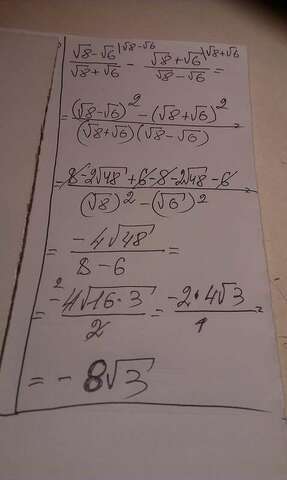 (√8-√6)/(√8+√6) |√8-√6 - (√8+√6)/(√8-√6) |√8+√6 =
= ((√8-√6)² - (√8+√6)²)/((√8+√6)(√8-√6)) =
= (8-2√48+6-8-2√48-6)/((√8)²-(√6)²) =
= (-4√48)/(8-6) =
= (-4√16·3)/2 2 = (-2·4√3)/1 =
= -8√3